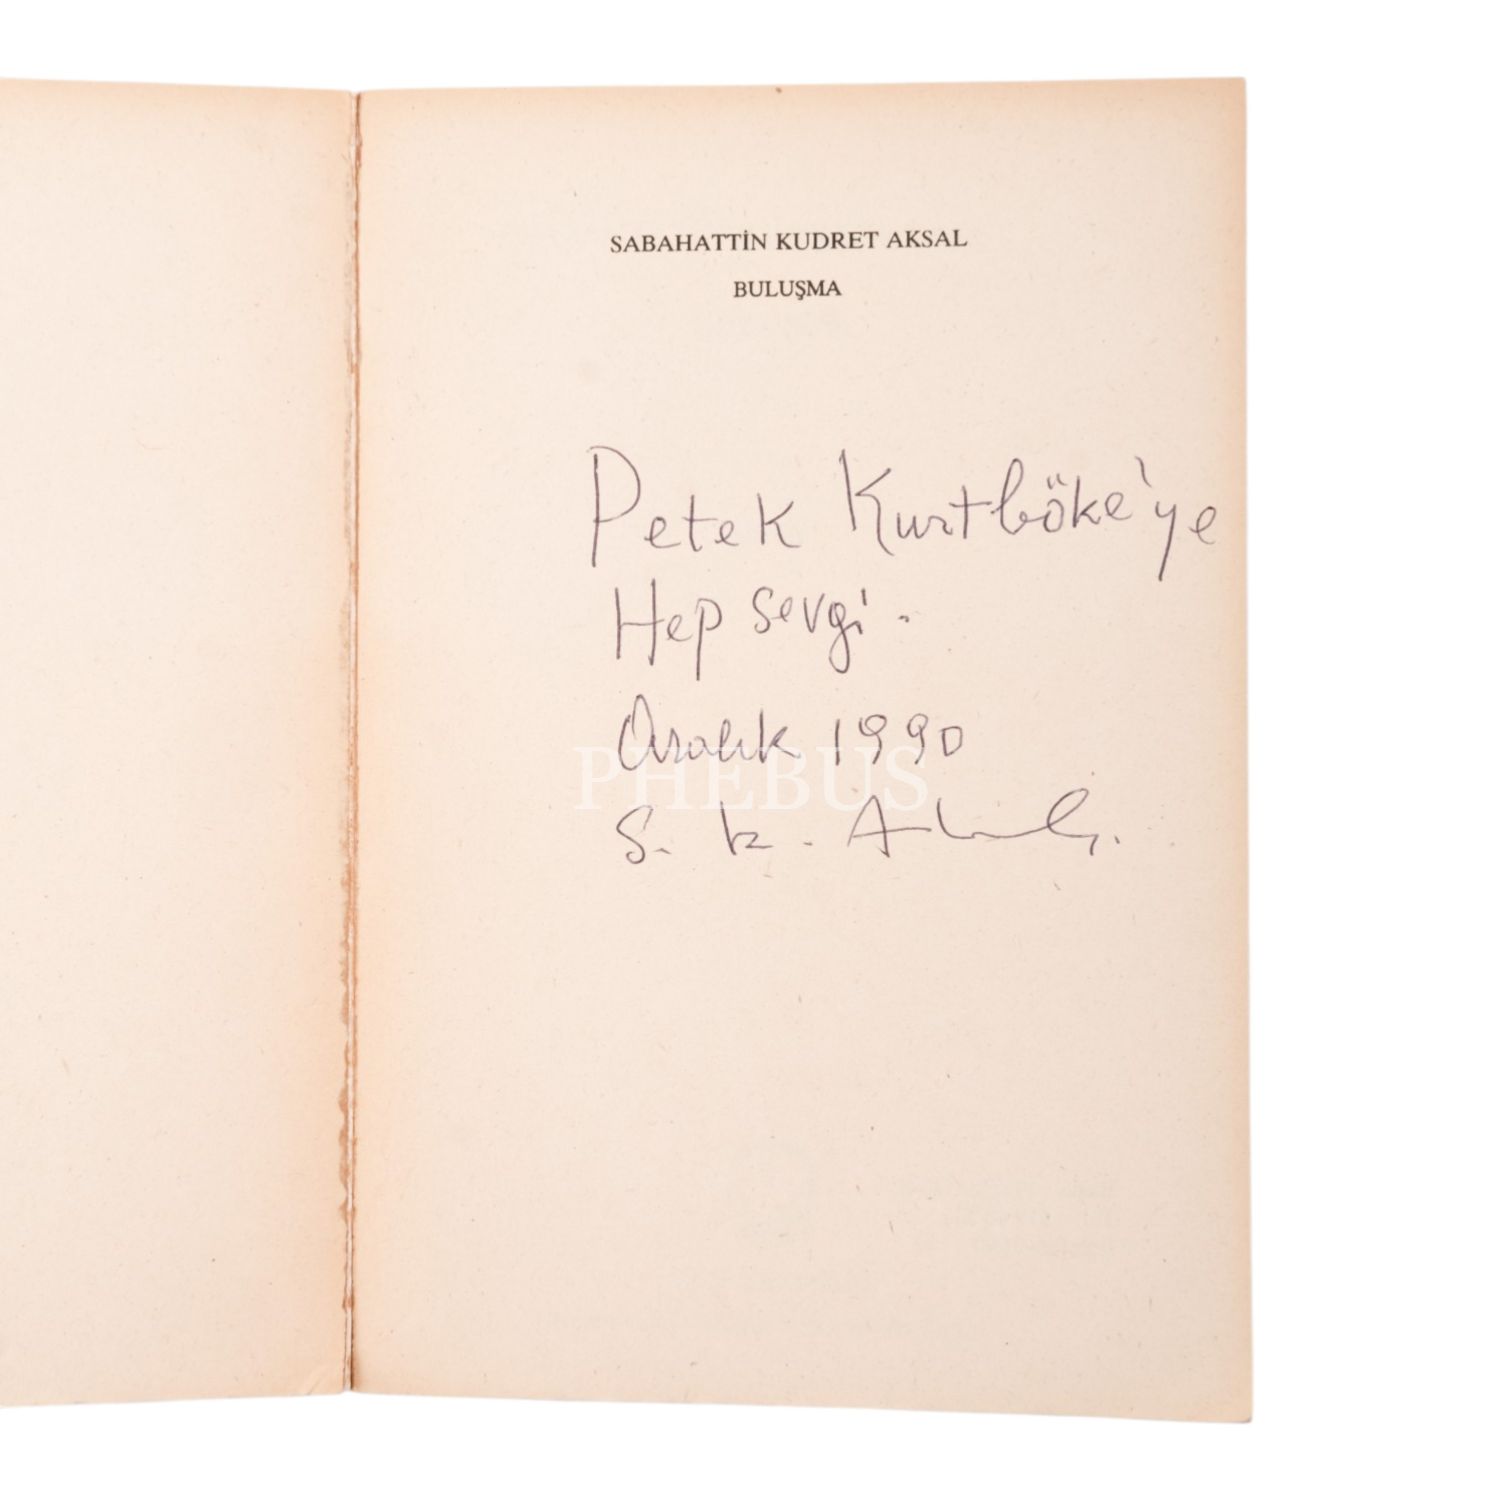 SABAHATTİN KUDRET AKSAL
BULUŞMA
Petek Kurtböke'ye
Hep sevgi.
Aralık 1990
PHEBUS
S. K. Aksal.